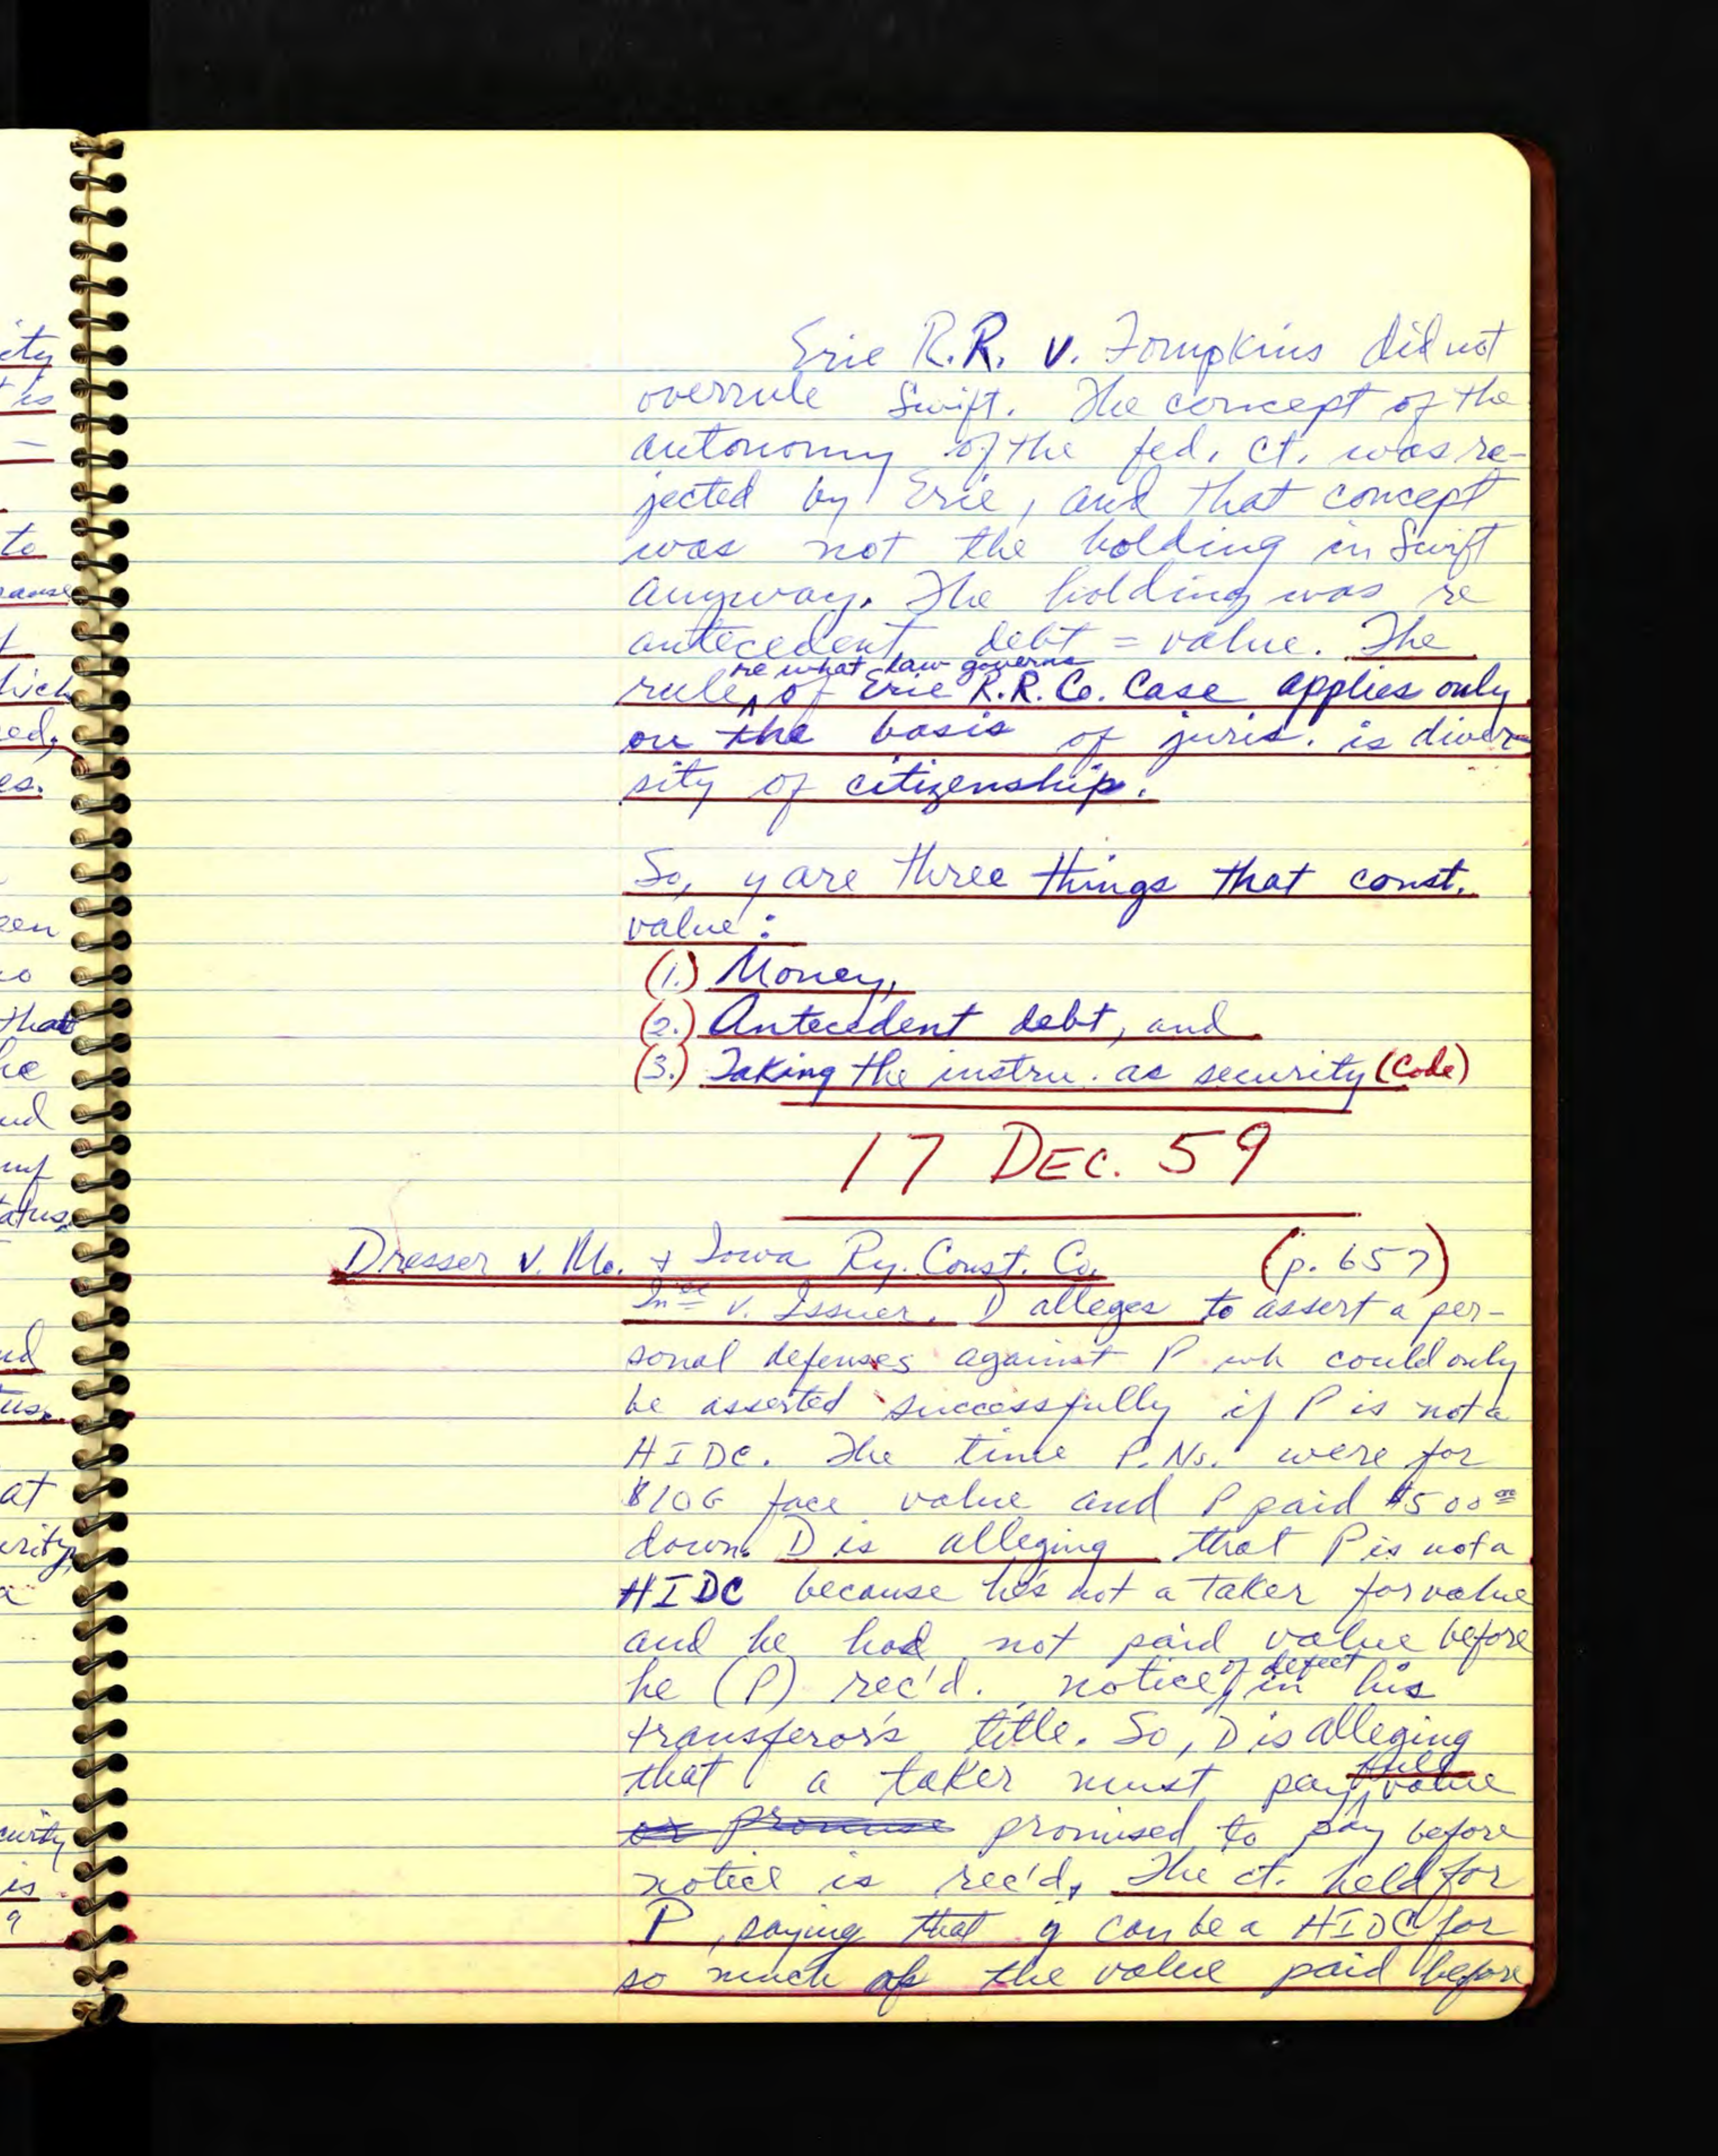 Erie R.R. v. Tompkins did not
overrule Swift. The concept of the
autonomy of the fed. ct. was re-
jected by Erie, and that concept
was not the holding in Swift
anyway. The holding was re
antecedent debt = value. The
re what law governs
rule ^ of Erie R.R. Co. Case applies only
on the basis of juris. is diver-
sity of citizenship.
So, y are three things that const.
value:
(1.) Money,
(2.) Antecedent debt, and
(3.) Taking the instru. as security (Code)
17 DEC. 59
Dresser v. Mo. & Iowa Ry. Const. Co. (p. 657)
v. Issuer. D alleges to assert a per-
sonal defenses against P wh could only
be asserted successfully if P is not a
HIDC. The time P.Ns. were for
$10G face value and P paid $500 00
down. D is alleging that P is not a
HIDC because he's not a taker for value
and he had not paid value before
he (P) rec'd. notice of defect in his
transferor's title. So, D is alleging
that a taker must pay full value
or promise promised to pay before
notice is rec'd. The ct. held for
P, saying that y can be a HIDC for
so much of the value paid before
ity
is
to
hich
ed,
es.
een
that
he
nd
atus,
nd
us.
at
urity,
curity
is